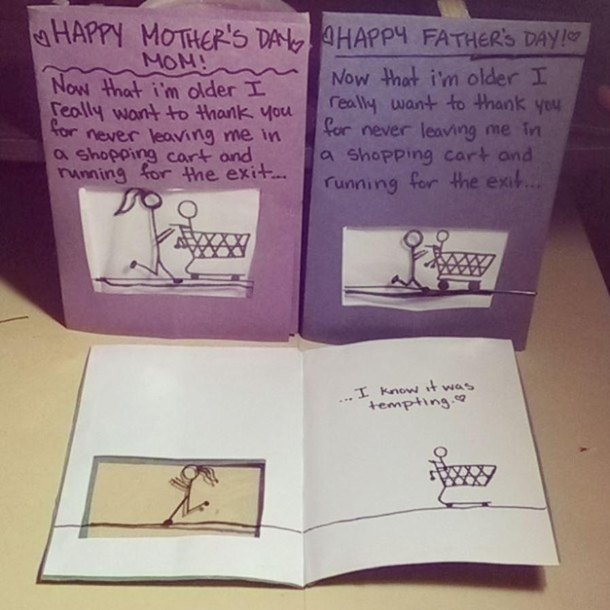 ♡HAPPY MOTHER'S DAY♡
MOM!
Now that i'm older I
really want to thank you
for never leaving me in
a shopping cart and
running for the exit...
♡HAPPY FATHER'S DAY!♡
Now that i'm older I
really want to thank you
for never leaving me in
a shopping cart and
running for the exit...
...I know it was
tempting.♡